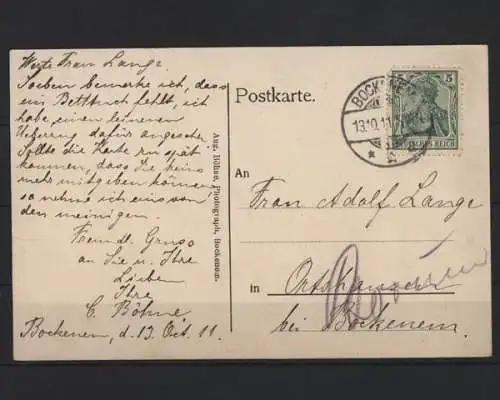 Werte Frau Lange.
Soeben bemerke ich, dass
ein Betttuch fehlt, ich
habe einen leinenen
Ueberzug dafür angesehen.
Sollte die Karte zu spät
kommen, dass Sie keins
mehr mitgeben können
so nehme ich eins von
den meinigen.
Freundl. Gruss
an Sie u. Ihre
Lieben
Ihre
C. Böhne
Bockenem, d. 13. Oct. 11.
Aug. Böhne, Photograph, Bockenem.
Postkarte.
BOCKENEM
13.10.11
5
DEUTSCHES REICH
An
Frau Adolf Lange
in
bei Bockenem.